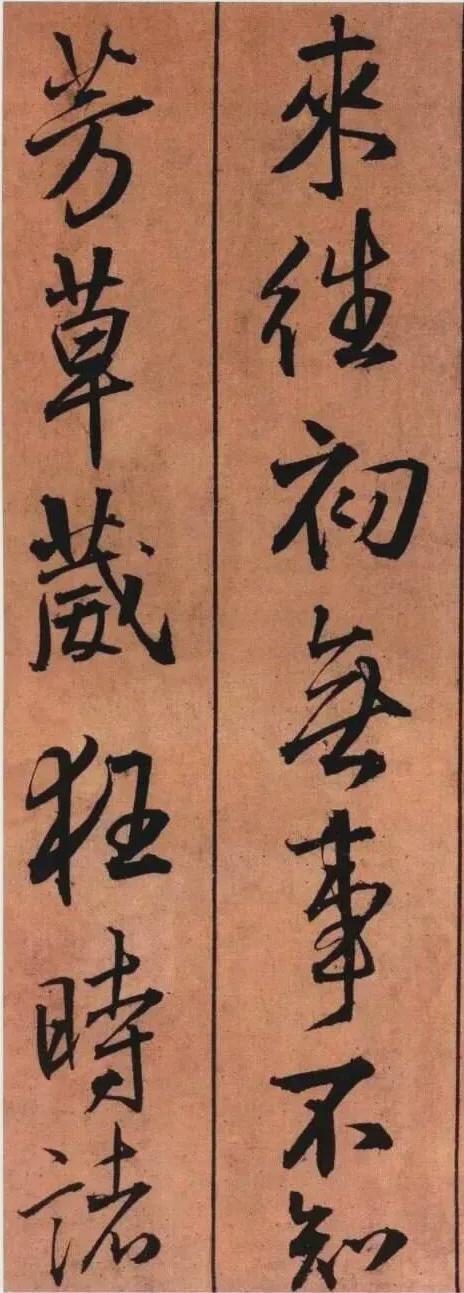 來往初無事不知
芳草葳狂時諸